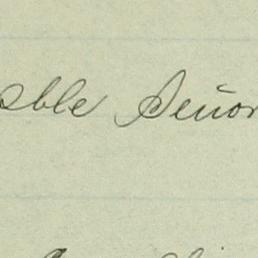 able Señor